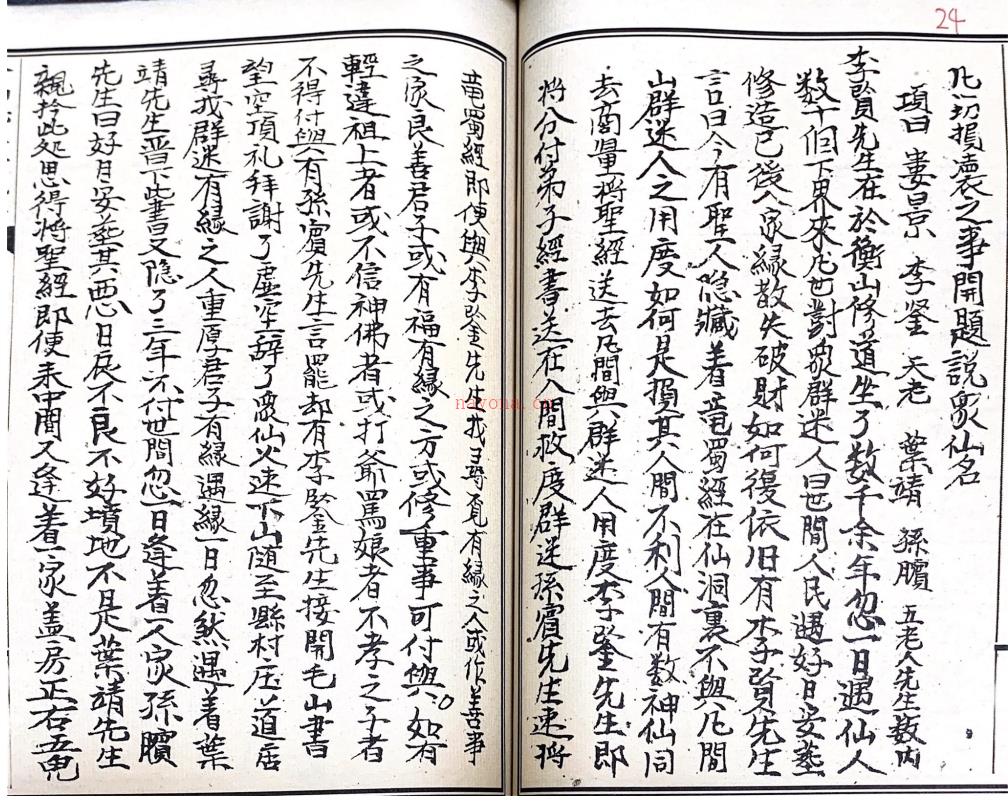 24
凡一切損瀆衣之事開題説衆仙名
項曰 婁景 李筌 天老 葉靖 孫臏 五老人先生数内
李賓先生在於衡山修道坐了数千余年忽一日遇仙人
数十個下界來凡世對衆群迷人曰世間人民遇好日安塟
修造已後人家緣散失破財如何復依旧有李賓先生
言曰今有聖人隐藏着竜蜀經在仙洞裏不與凡間
山群迷人之用度如何是損其人間不利人間有数神仙同
去商量將聖經送去凡間與群迷人用度李筌先生即
將分付弟子經書送在人間救度群迷孫賓先生速將
竜蜀經即便與李筌先生找尋覓有緣之人或作善事
之家良善君子或有福有緣之方或修重事可付與。如有
輕違祖上者或不信神佛者或打爺罵娘者不孝之子者
不得付與有孫賓先生言罷却有李筌先生接開毛山書
望空頂礼拜謝了虚空辞了衆仙火速下山随至縣村庄道居
尋找群迷有緣之人重厚君子有緣遇緣一日忽然遇着葉
靖先生晋下此書又隐了三年不付世間忽一日逢着一人家孫臏
先生曰好月安塟其悪日辰不良不好墳地不是葉靖先生
親拎此处思得將聖經即便来中間又逢着一家盖房正右五鬼
nayona.cn